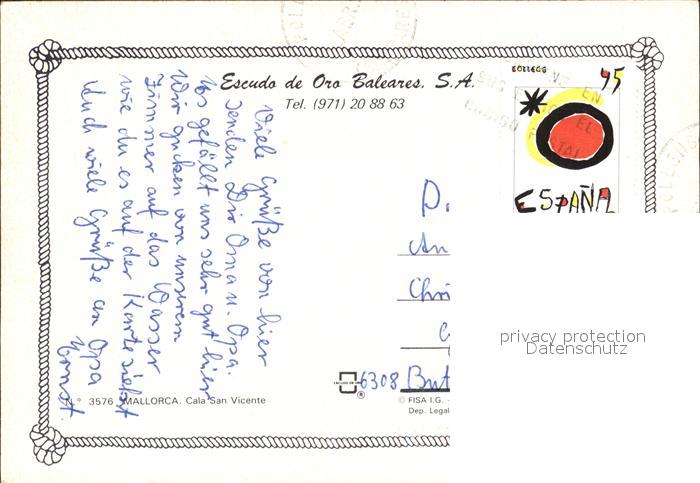 Escudo de Oro Baleares, S.A.
Tel. (971) 20 88 63
Viele Grüße von hier
senden Dir Oma u. Opa.
Es gefällt uns sehr gut hier
Wir gucken von unserem
Zimmer auf das Wasser
wie du es auf der Karte siehst
Auch viele Grüße an Opa
Ernst.
CORREOS
45
ESPAÑA
D.
An
Chri
6308 But
privacy protection
Datenschutz
N.° 3576 MALLORCA. Cala San Vicente
ESCUDO DE ORO
®
© FISA I.G. -
Dep. Legal